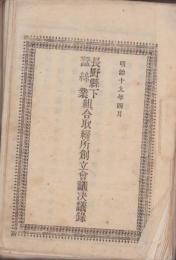 明治十九年四月
長野縣下
蠶絲業組合取締所創立會議决議錄